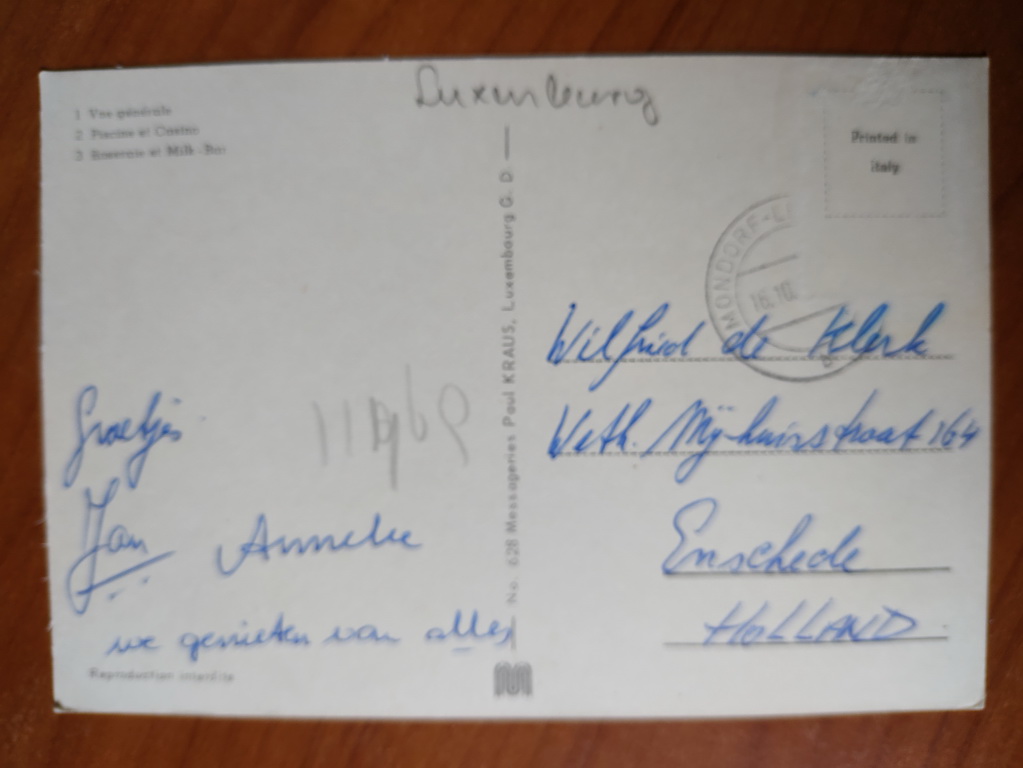 Luxemburg
1 Vue générale
2 Piscine et Casino
3 Roseraie et Milk-Bar
Printed in
Italy
MONDORF-L
16.10.
Wilfried de Klerk
Weth. Nijhuisstraat 164
Enschede
HOLLAND
Groetjes
Jan Anneke
we genieten van alles
Reproduction interdite
No. 628 Messageries Paul KRAUS, Luxembourg G. D.